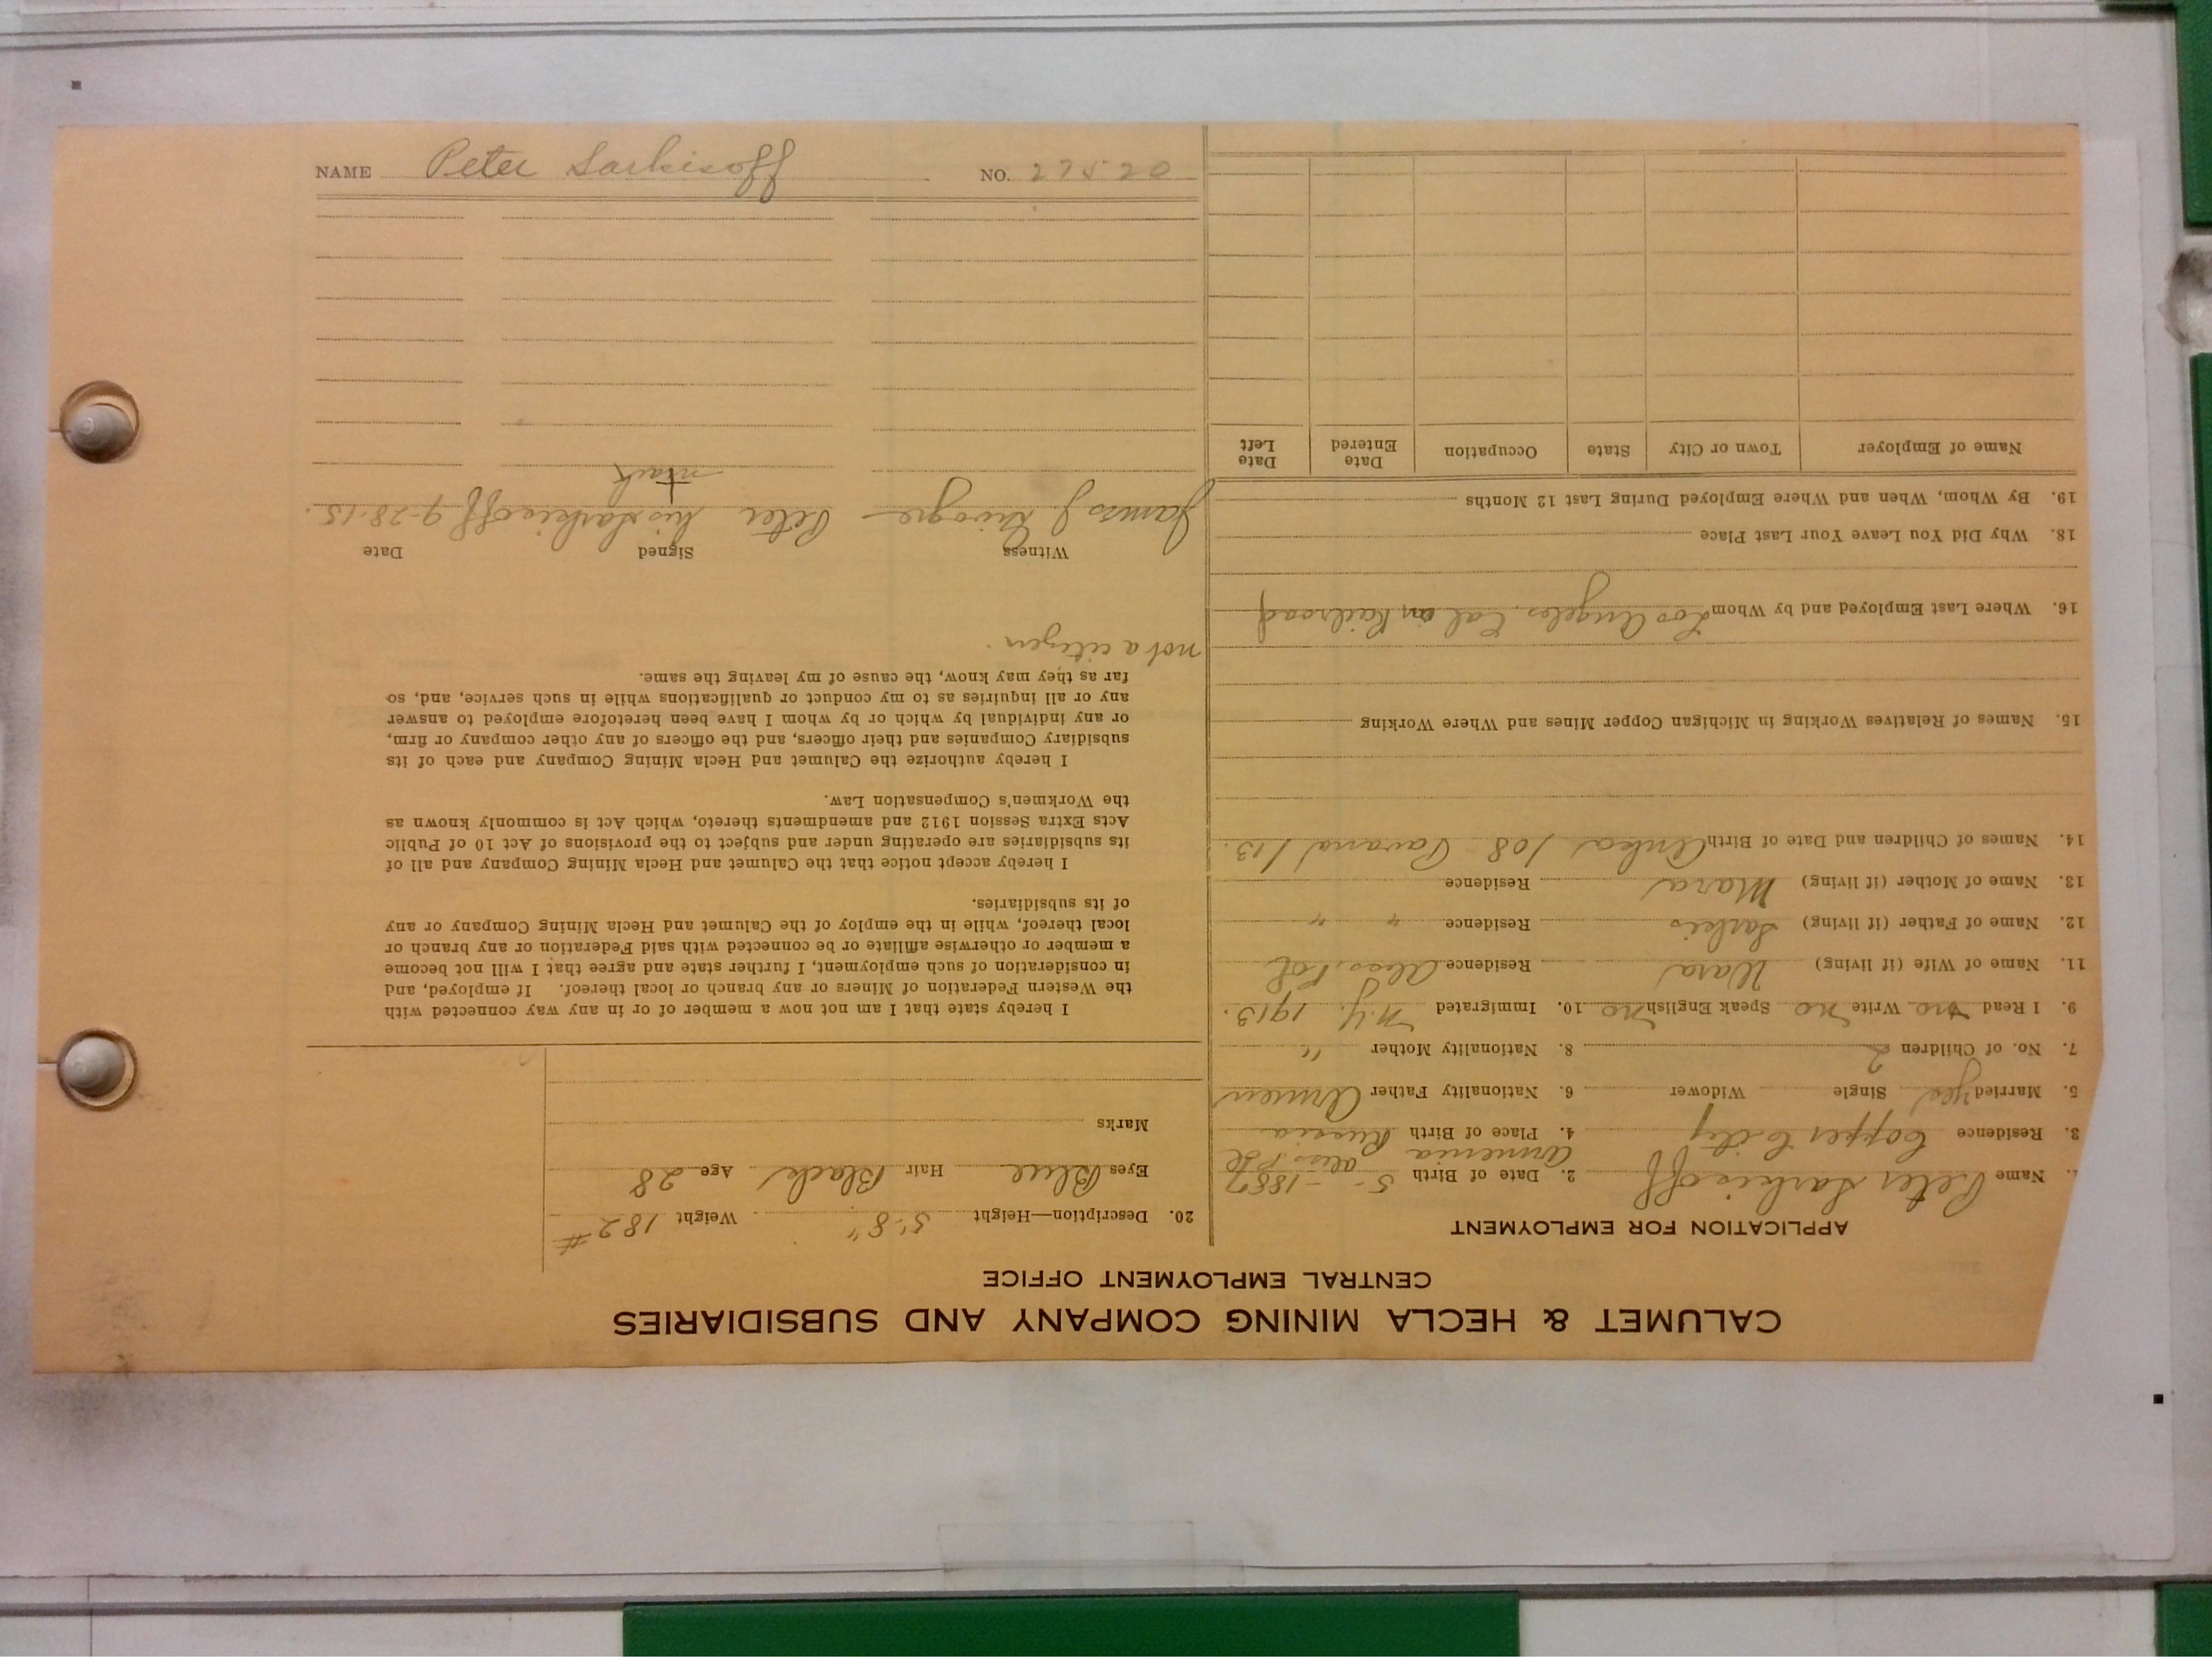 CALUMET & HECLA MINING COMPANY AND SUBSIDIARIES
CENTRAL EMPLOYMENT OFFICE
APPLICATION FOR EMPLOYMENT
1. Name Peter Sarkisoff 2. Date of Birth 5- -1887
3. Residence Copper City 4. Place of Birth Russia Armenia
5. Married yes Single Widower 6. Nationality Father Armen
7. No. of Children 2 8. Nationality Mother "
9. I Read no Write no Speak English no 10. Immigrated N.Y. 1913.
11. Name of Wife (if living) Wara Residence
12. Name of Father (if living) Sarkis Residence " "
13. Name of Mother (if living) Mara Residence
14. Names of Children and Date of Birth 108 113.
15. Names of Relatives Working in Michigan Copper Mines and Where Working
16. Where Last Employed and by Whom Los Angeles, Cal on Railroad
18. Why Did You Leave Your Last Place
19. By Whom, When and Where Employed During Last 12 Months
Name of Employer Town or City State Occupation Date Entered Date Left
20. Description—Height 5'.8" Weight 182 #
Eyes Blue Hair Black Age 28
Marks
I hereby state that I am not now a member of or in any way connected with
the Western Federation of Miners or any branch or local thereof. If employed, and
in consideration of such employment, I further state and agree that I will not become
a member or otherwise affiliate or be connected with said Federation or any branch or
local thereof, while in the employ of the Calumet and Hecla Mining Company or any
of its subsidiaries.
I hereby accept notice that the Calumet and Hecla Mining Company and all of
its subsidiaries are operating under and subject to the provisions of Act 10 of Public
Acts Extra Session 1912 and amendments thereto, which Act is commonly known as
the Workmen's Compensation Law.
I hereby authorize the Calumet and Hecla Mining Company and each of its
subsidiary Companies and their officers, and the officers of any other company or firm,
or any individual by which or by whom I have been heretofore employed to answer
any or all inquiries as to my conduct or qualifications while in such service, and, so
far as they may know, the cause of my leaving the same.
not a citizen.
Witness Signed Date
James J. Peter his Sarkisoff 9-28-15.
mark
NAME Peter Sarkisoff NO. 27520